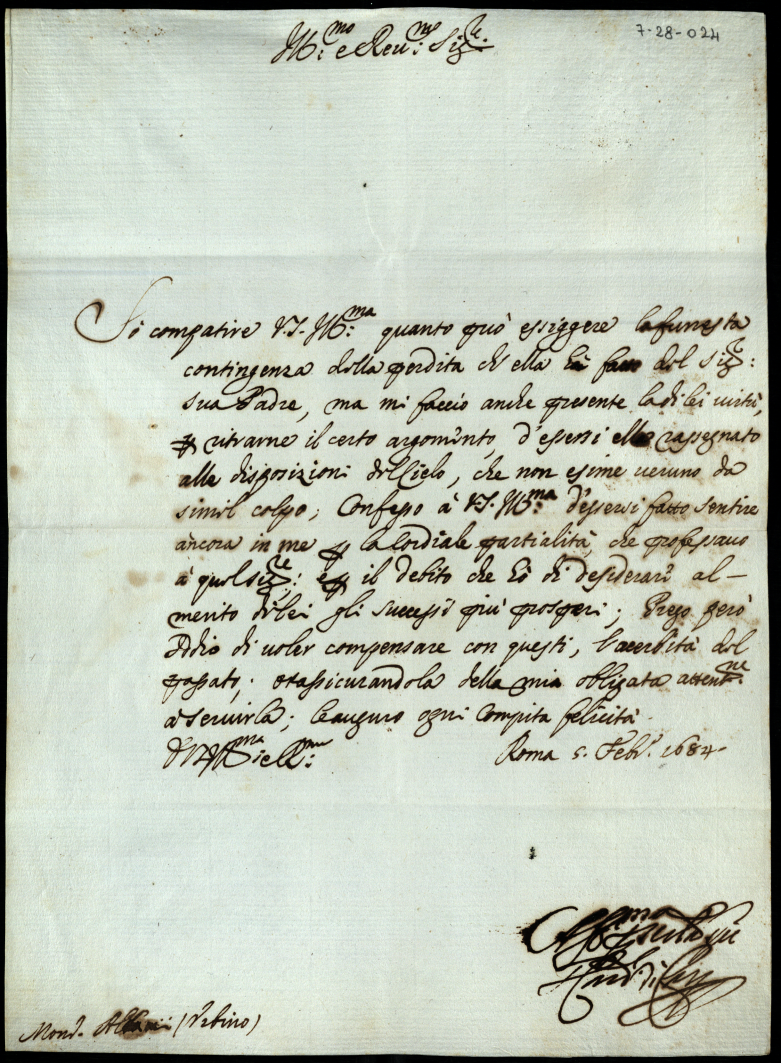 Ill:mo e Reu:mo Sig:re
7-28-024
Sò compatire V.S. Ill:ma quanto può essiggere la funesta
contingenza della perdita ch'ella hà fatto del Sig:re
suo Padre, ma mi faccio anche presente la di lei uirtù,
p ritrarne il certo argomento, d'essersi ella rassegnato
alle disposizioni del Cielo, che non esime ueruno da
simil colpo; Confesso à V.S. Ill:ma d'essersi fatto sentire
ancora in me p la Cordiale partialità, che professauo
à quel Sig:re; e p il debito che hò di desiderare al-
merito di lei gli successi più prosperi; Prego però
Iddio di uoler compensare con questi, l'acerbità del
passato; e rassicurandola della mia obligata attent:ne
à seruirla; le auguro ogni Compita felicità.
Di V.S. Ill:ma e R:ma
Roma 5. Feb:o 1684.
Mons. Albani (Urbino)